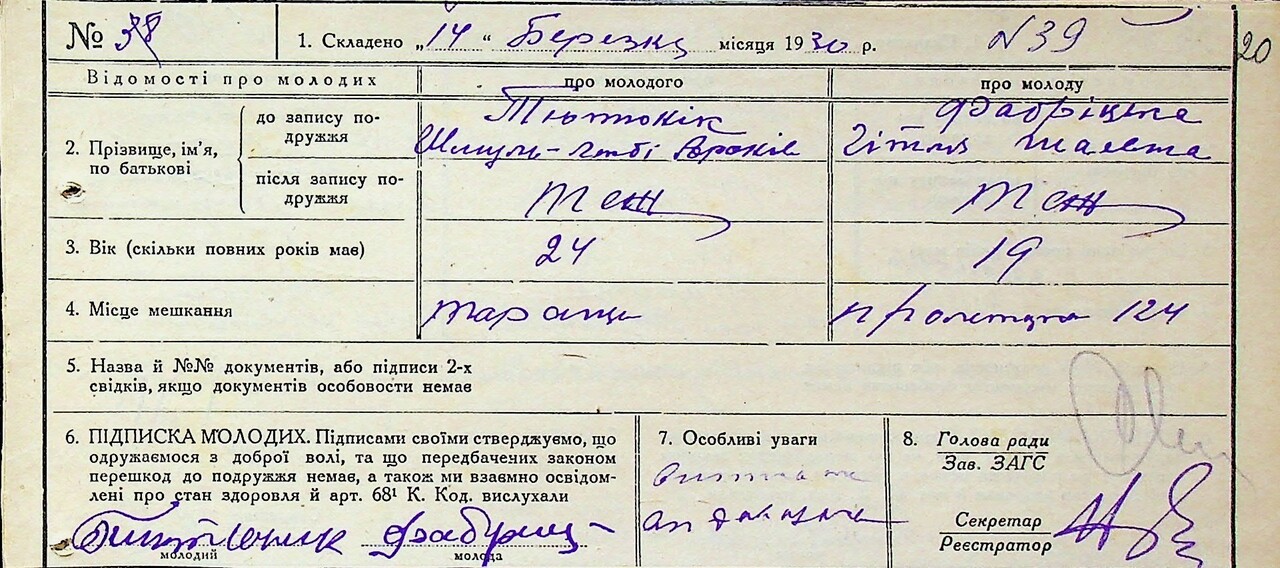 № 38
1. Складено „14“ Березня місяця 1930 р.
N39
20
Відомості про молодих
про молодого
про молоду
2. Прізвище, ім'я, по батькові
до запису подружжя
Тютюнік
Шмуль-Лейбі
Фабріцька
Гітля
після запису подружжя
теж
теж
3. Вік (скільки повних років має)
24
19
4. Місце мешкання
Тараща
124
5. Назва й №№ документів, або підписи 2-х
свідків, якщо документів особовости немає
6. ПІДПИСКА МОЛОДИХ. Підписами своїми стверджуємо, що
одружаємося з доброї волі, та що передбачених законом
перешкод до подружжя немає, а також ми взаємно освідом-
лені про стан здоров'я й арт. 68¹ К. Код. вислухали
Тютюник
Фабриц
молодий
молода
7. Особливі уваги
8. Голова ради
Зав. ЗАГС
Секретар
Реєстратор